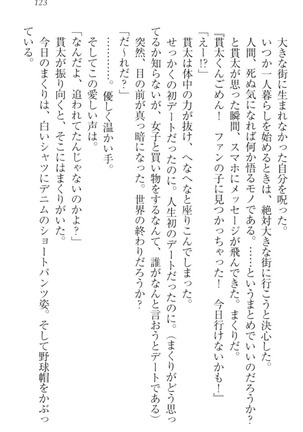 123
大きな街に住まわなかった自分を呪った。
いつか一人暮らしを始めるときは、絶対大きな街に行こうと決心した。
人間、死ぬ気になれば何か悟るモノである。………というまとめでいいのだろうか？
貫太が思った瞬間、スマホにメッセージが飛んできた。まくりだ。
『貫太くんごめん！　ファンの子に見つかっちゃった！　今日行けないかも！』
「えー!?」
貫太は体中の力が抜け、へなへなと座りこんでしまった。
せっかくの初デートだったのに。人生初のデートだったのに。（まくりがどう思っ
てるか知らないが、女子と買い物をするなんて、誰がなんと言おうとデートである）
突然、目の前が真っ暗になった。世界の終わりだろうか？
「だ・れだ？」
………優しく温かい手。
そしてこの愛しい声は。
「なんだよ、追われてたんじゃないのかよ？」
貫太が振り向くと、そこにはまくりがいた。
今日のまくりは、白いシャツにデニムのショートパンツ姿。そして野球帽をかぶっ
ている。